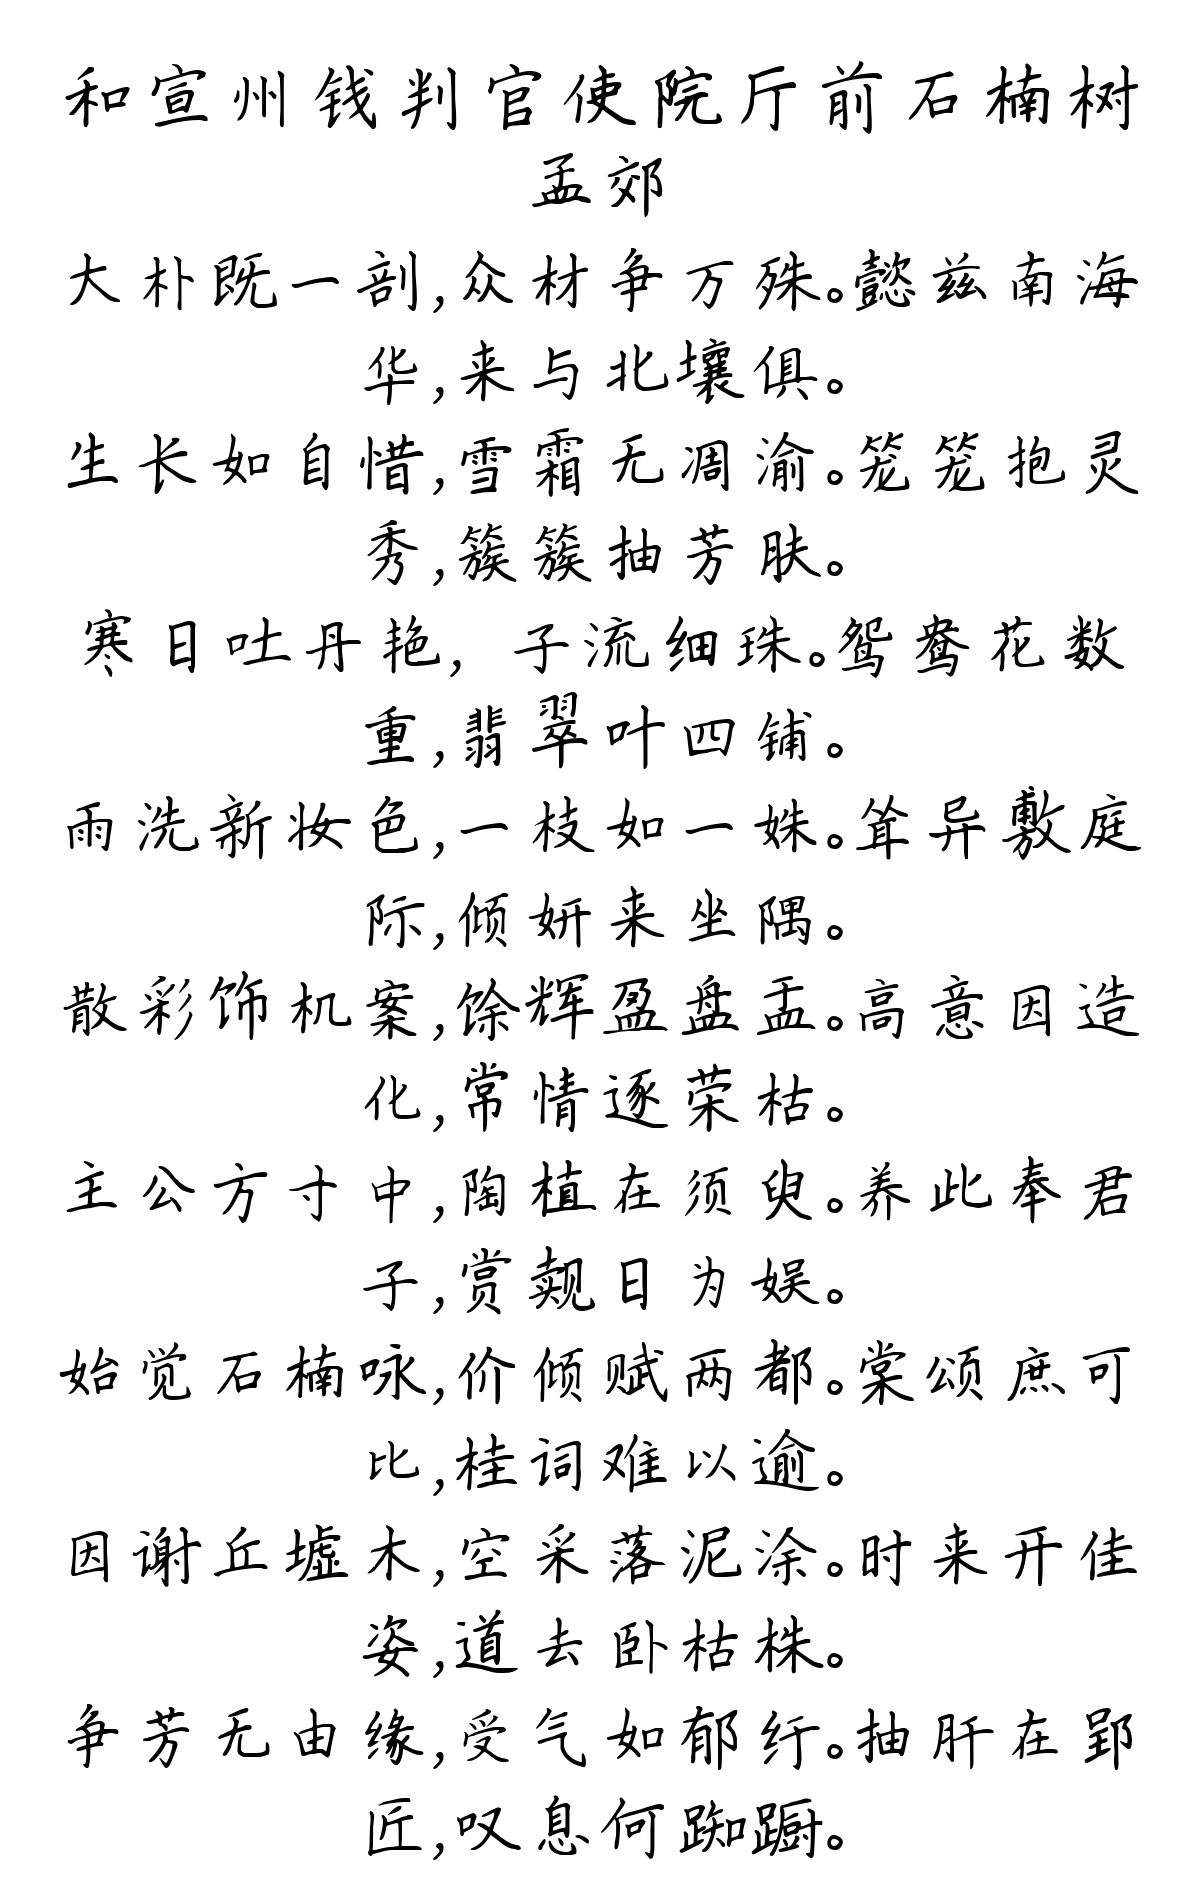 和宣州钱判官使院厅前石楠树
孟郊
大朴既一剖,众材争万殊。懿兹南海
华,来与北壤俱。
生长如自惜,雪霜无凋渝。笼笼抱灵
秀,簇簇抽芳肤。
寒日吐丹艳, 子流细珠。鸳鸯花数
重,翡翠叶四铺。
雨洗新妆色,一枝如一姝。耸异敷庭
际,倾妍来坐隅。
散彩饰机案,馀辉盈盘盂。高意因造
化,常情逐荣枯。
主公方寸中,陶植在须臾。养此奉君
子,赏觌日为娱。
始觉石楠咏,价倾赋两都。棠颂庶可
比,桂词难以逾。
因谢丘墟木,空采落泥涂。时来开佳
姿,道去卧枯株。
争芳无由缘,受气如郁纡。抽肝在郢
匠,叹息何踟蹰。